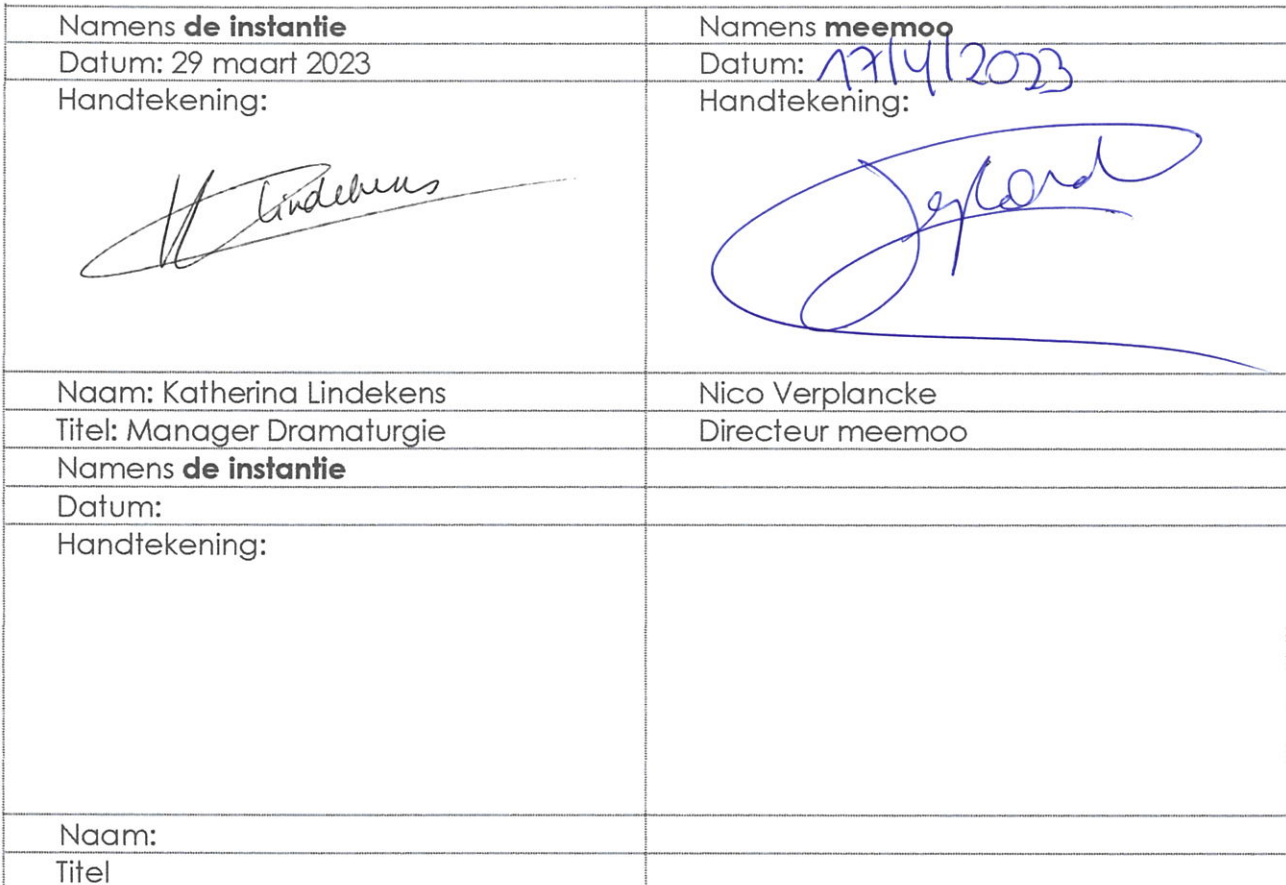 Namens de instantie
Namens meemoo
Datum: 29 maart 2023
Datum: 17/4/2023
Handtekening:
Handtekening:
Lindekens
Naam: Katherina Lindekens
Nico Verplancke
Titel: Manager Dramaturgie
Directeur meemoo
Namens de instantie
Datum:
Handtekening:
Naam:
Titel